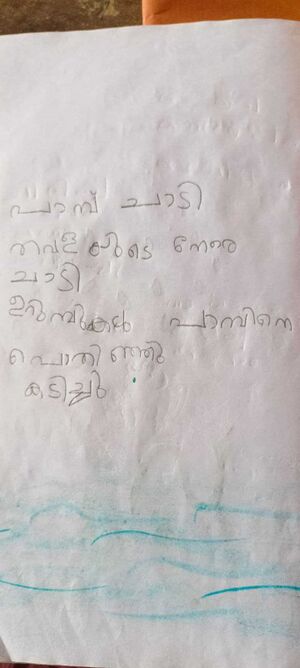 പാമ്പ് ചാടി
തവളയുടെ നേരെ
ചാടി
ഉറുമ്പുകൾ പാമ്പിനെ
പൊതിഞ്ഞു
കടിച്ചു